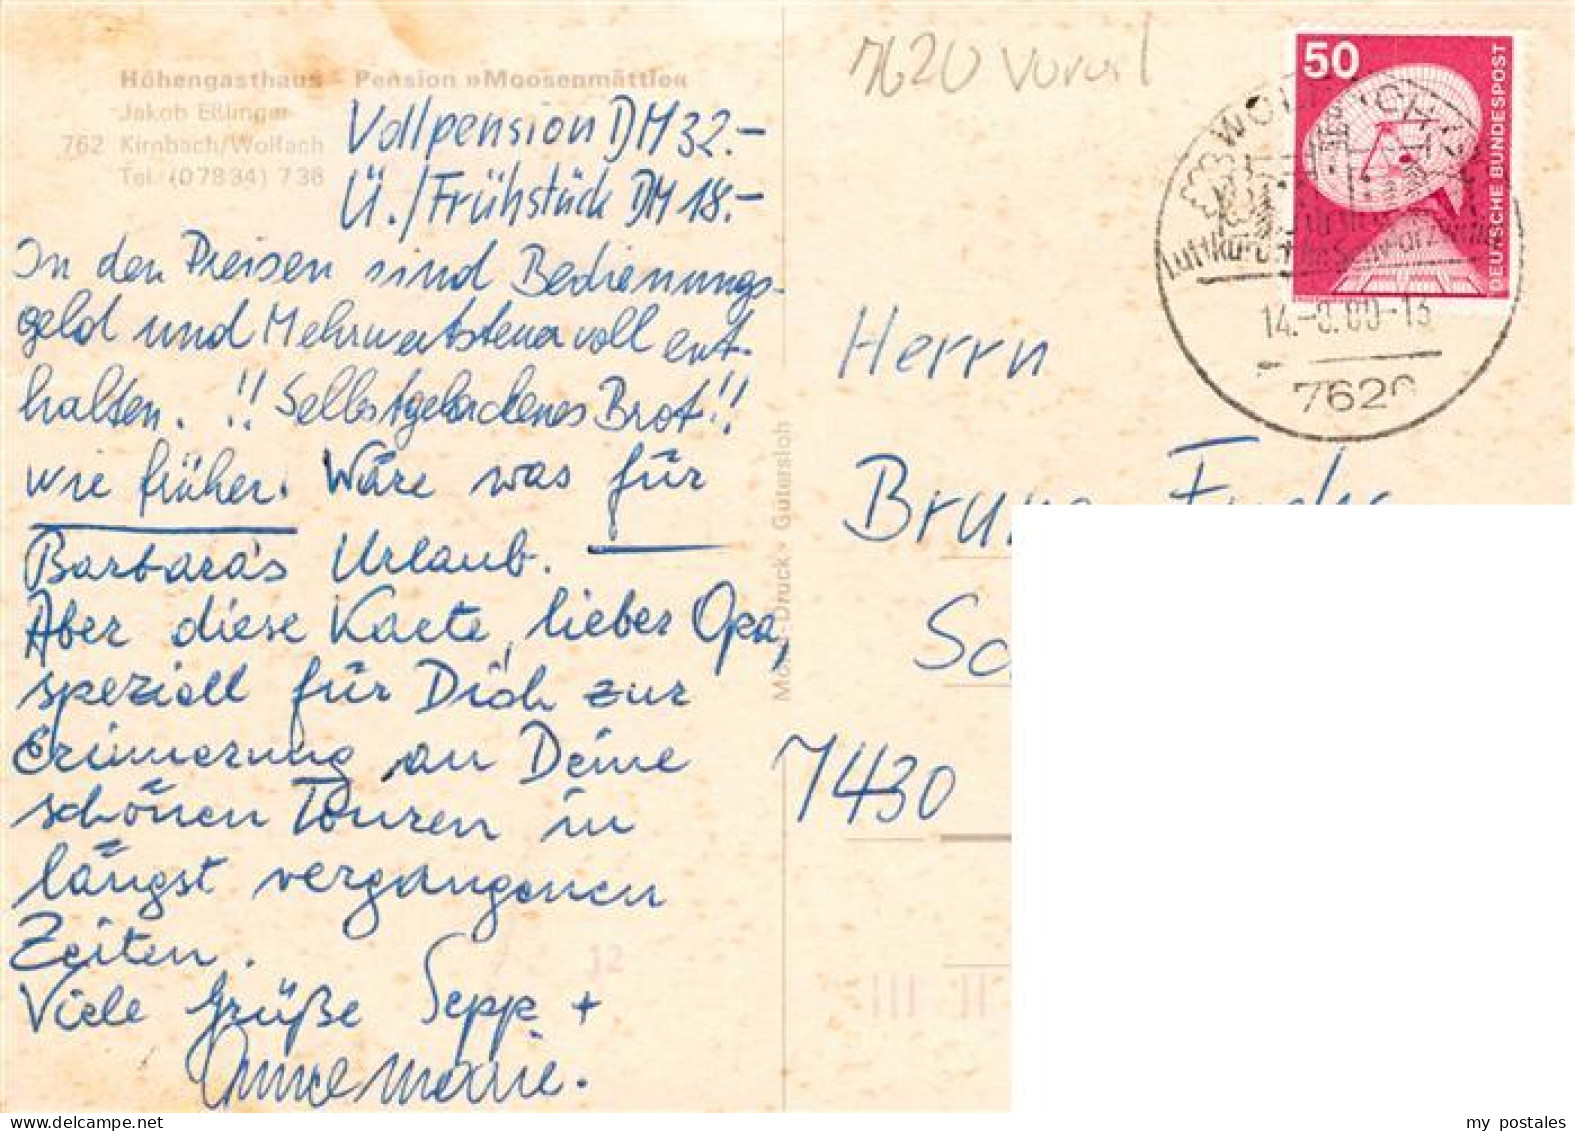 Höhengasthaus - Pension »Moosenmättle«
Jakob Eßlinger
762 Kirnbach/Wolfach
Tel. (07834) 736
Vollpension DM 32.-
Ü./Frühstück DM 18.-
In den Preisen sind Bedienungs-
geld und Mehrwertsteuer voll ent-
halten. !! Selbstgebackenes Brot!!
wie früher. Wäre was für
Barbara's Urlaub.
Aber diese Karte, lieber Opa,
speziell für Dich zur
Erinnerung an Deine
schönen Touren in
längst vergangenen
Zeiten.
Viele Grüße Sepp +
Annemarie.
12
Mohn-Druck · Gütersloh
7620
50
DEUTSCHE BUNDESPOST
7620
Herrn
Bruno Fuchs
7430
my postales